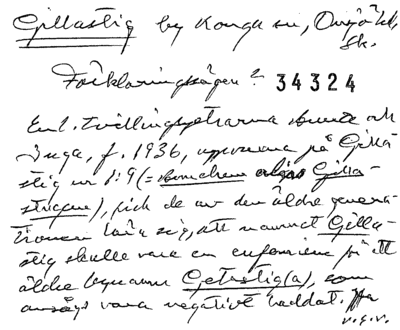 Gillastig by Konga sn, Onsjö hd,
Sk.
Förklaringssägen? 34324
Enl. tvillingsystrarna och
Inga, f. 1936, uppvuxna på Gilla-
stig nr 1:9 (= Gilla-
stigen), fick de av den äldre genera-
tionen lära sig, att namnet Gilla-
stig skulle vara en eufemism på ett
äldre bynamn Getastig(a), som
ansågs vara negativt laddat.
v.s.v.